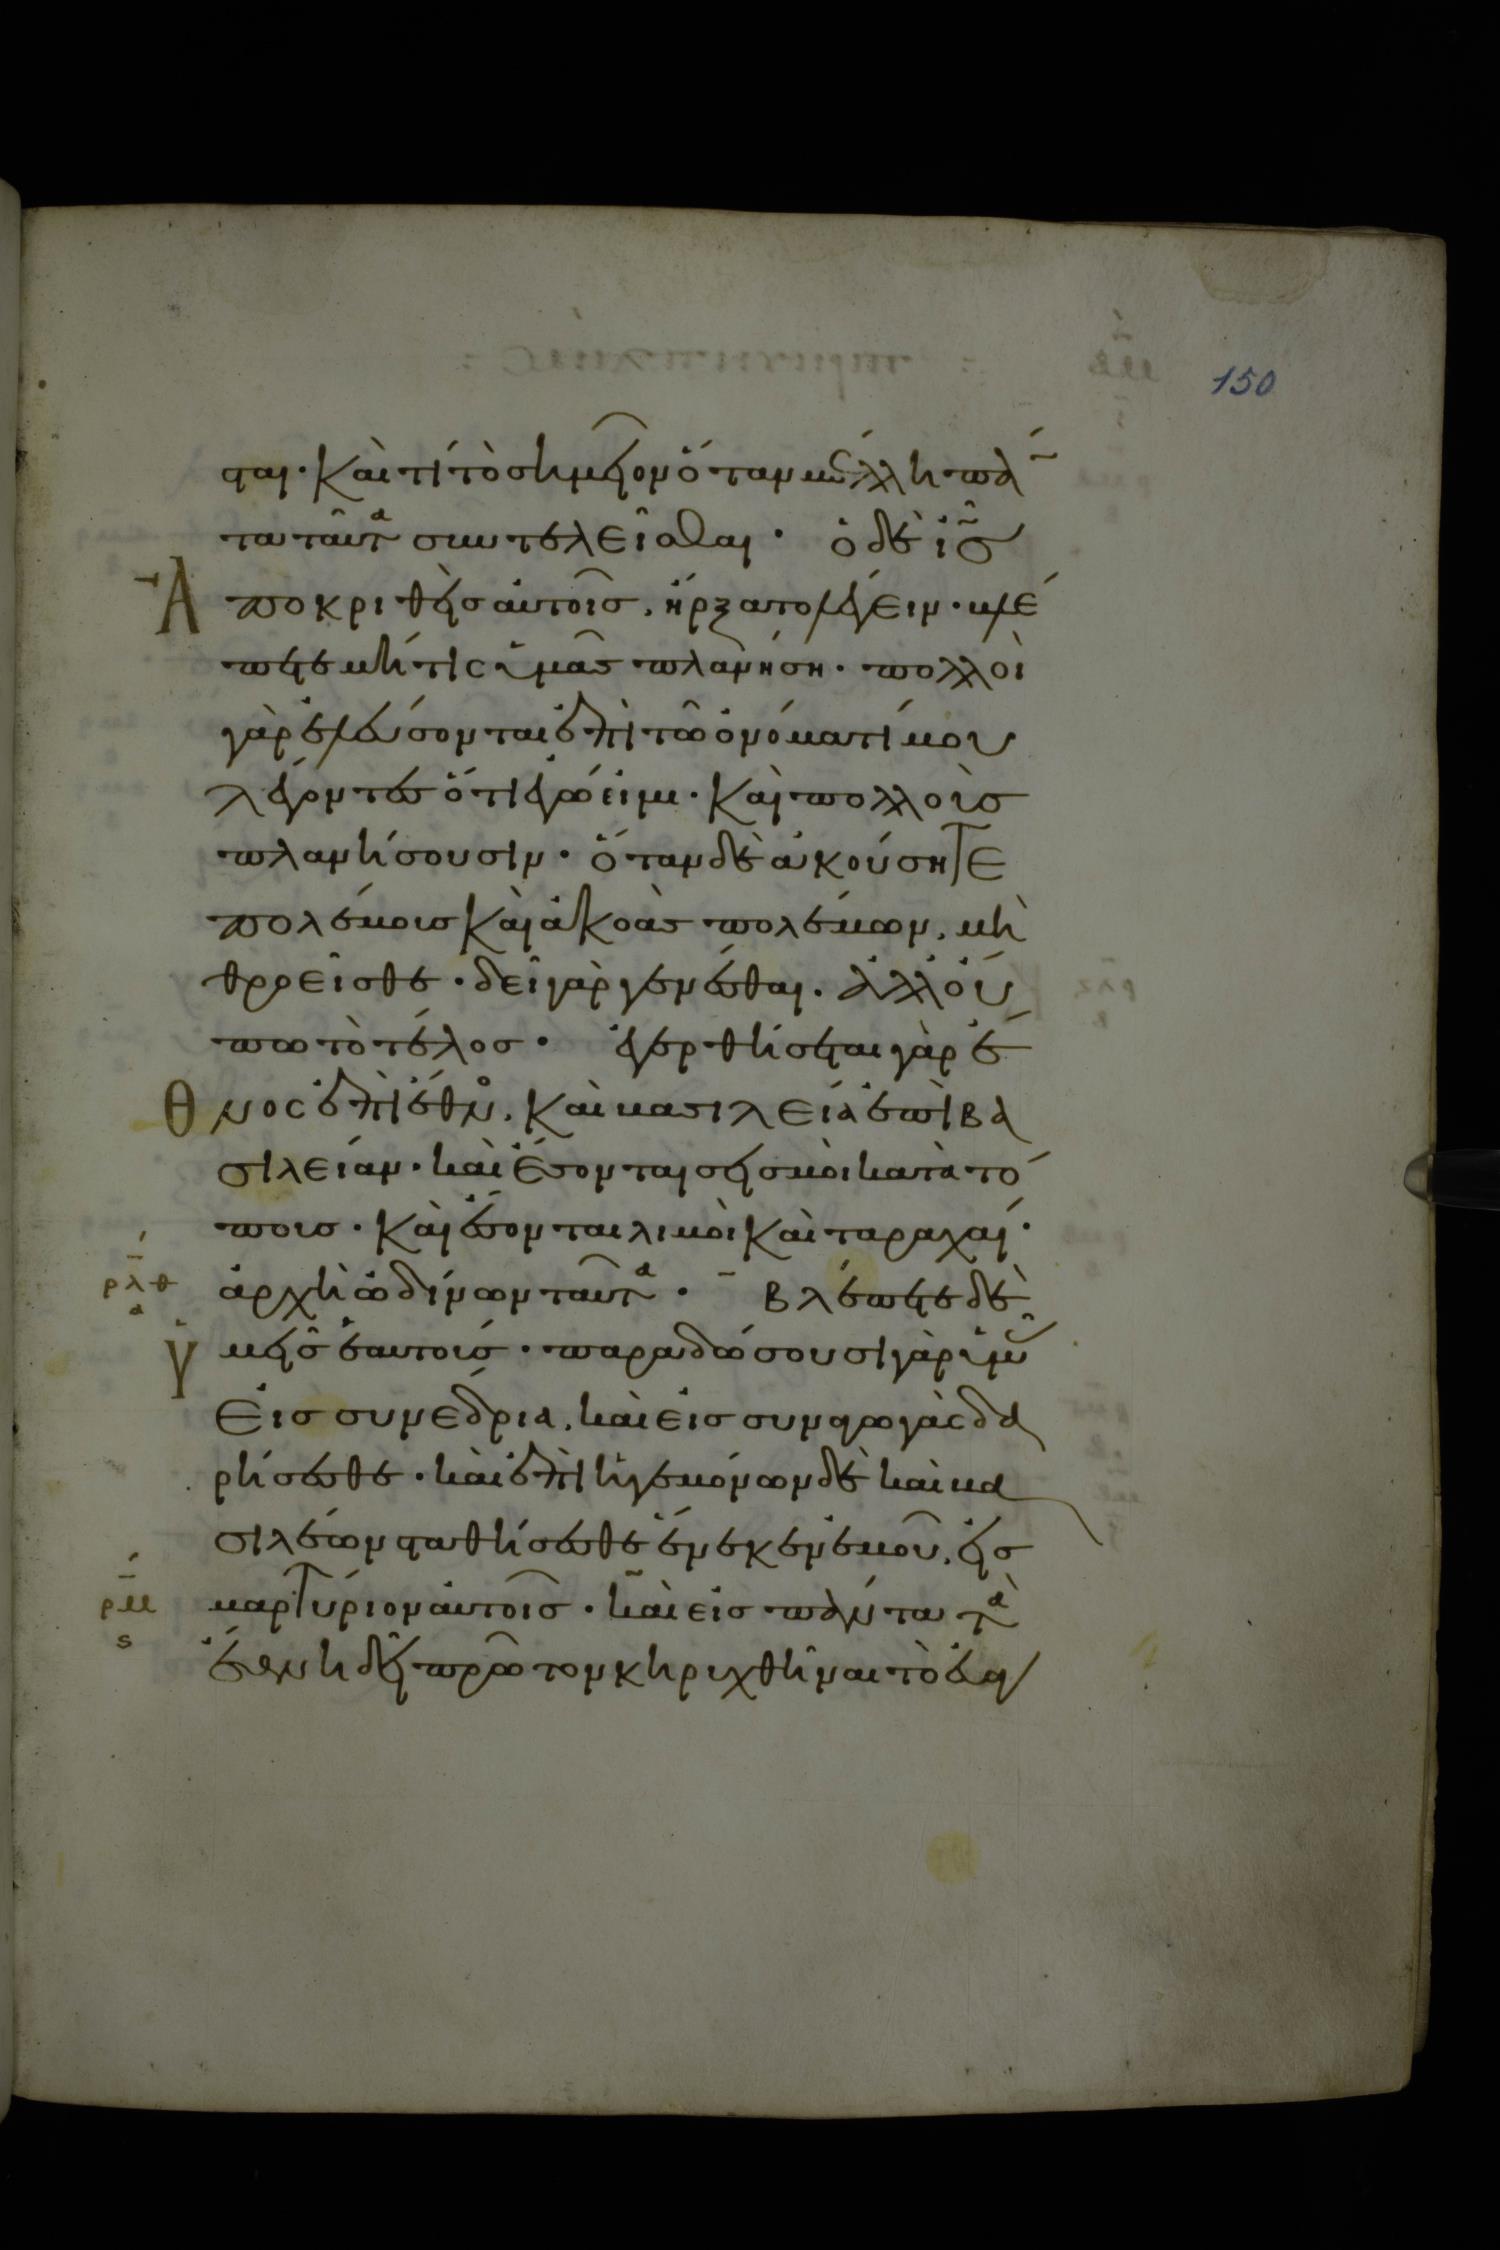 150
σται· καὶ τί τὸ σημεῖον ὅταν μέλλη πάν
τα ταῦτα συντελεῖσθαι· ὁ δὲ ις
Ἀποκριθεὶς αὐτοῖς, ἤρξατο λέγειν· βλέ
πετε μή τις ὑμᾶς πλανήση· πολλοὶ
γὰρ ἐλεύσονται ἐπὶ τῶ ὀνόματί μου
λέγοντες ὅτι ἐγώ εἰμι· καὶ πολλοὺς
πλανήσουσιν· ὅταν δὲ ἀκούσητε
πολέμους καὶ ἀκοὰς πολέμων, μὴ
θροεῖσθε· δεῖ γὰρ γενέσθαι· ἀλλ' οὔ
πω τὸ τέλος· ἐγερθήσεται γὰρ ἔ
θνος ἐπὶ ἔθνος, καὶ βασιλεία ἐπὶ βα
σιλείαν· καὶ ἔσονται σεισμοὶ κατὰ τό
πους· καὶ ἔσονται λιμοὶ καὶ ταραχαί·
ρλθ α ἀρχὴ ὠδίνων ταῦτα· βλέπετε δὲ
ὑμεῖς ἑαυτούς· παραδώσουσι γὰρ ὑμᾶς
εἰς συνέδρια, καὶ εἰς συναγωγὰς δα
ρήσεσθε· καὶ ἐπὶ ἡγεμόνων δὲ καὶ βα
σιλέων σταθήσεσθε ἕνεκεν ἐμοῦ, εἰς
ρμ ς μαρτύριον αὐτοῖς· καὶ εἰς πάντα τὰ
ἔθνη δεῖ πρῶτον κηρυχθῆναι τὸ εὐαγ